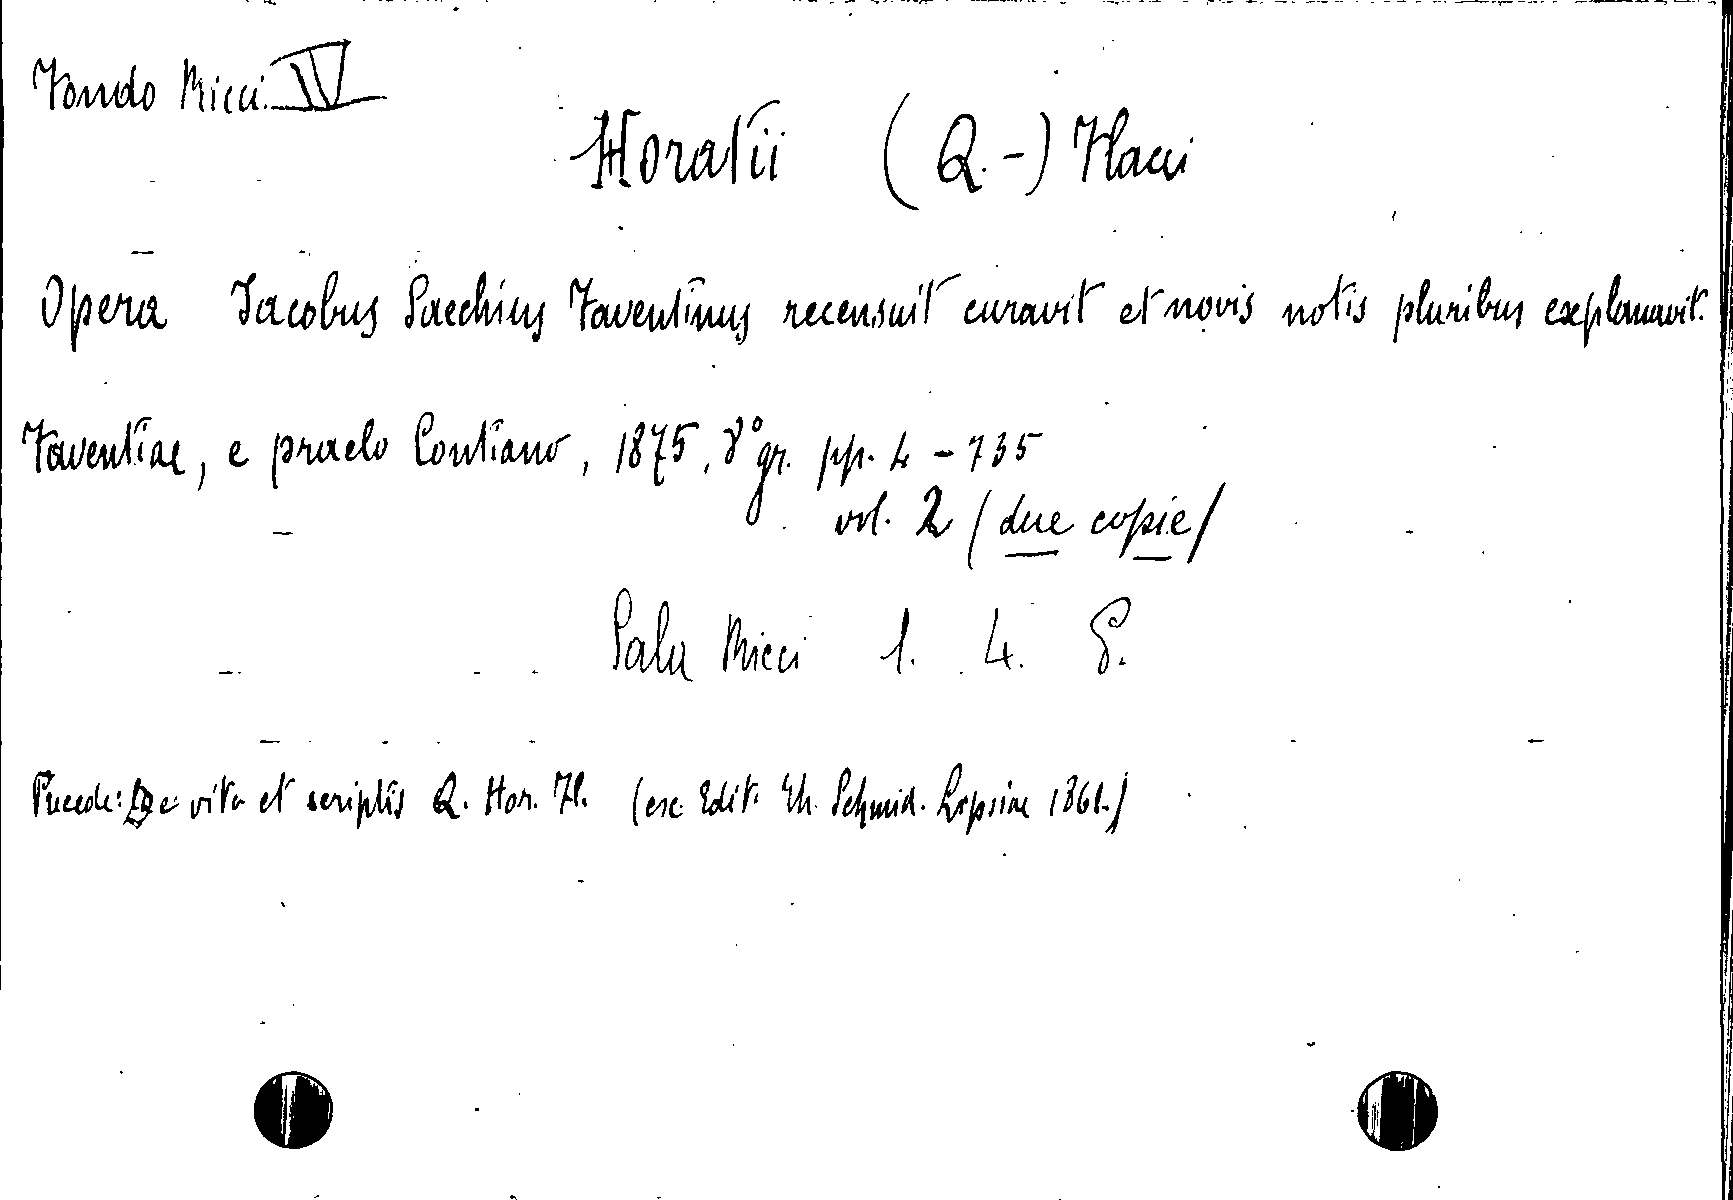 Fondo Ricci IV
Horatii (Q.-) Flacci
Opera Jacobus Sacchius Faventinus recensuit curavit et novis notis pluribus explanavit.
Faventiae, e praelo Contiano, 1875, 8° gr. pp. 4 - 735
vol. 2 (due copie)
Sala Ricci 1. 4. 8.
Precede: De vita et scriptis Q. Hor. Fl. (ex Edit. Th. Schmid. Lipsiae 1861.)